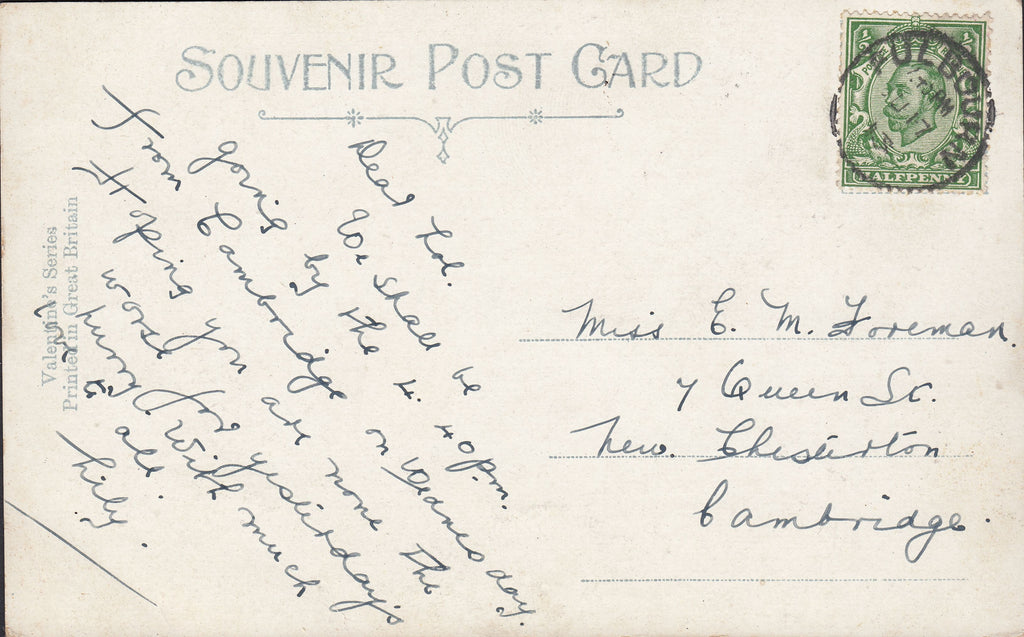 SOUVENIR POST CARD
Dear Lol.
We shall be
going by the 4.40pm.
From Cambridge on Wednesday.
Hoping you are none the
worse for yesterday's
hurry. With much
to all.
Lily.
Miss E. M. Foreman.
7 Queen St.
New. Chesterton
Cambridge.
Valentine's Series
Printed in Great Britain
FULBOURN
HALFPENNY